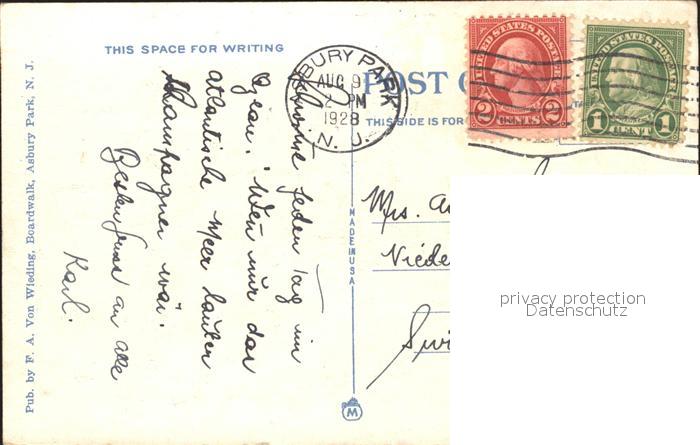 THIS SPACE FOR WRITING
Pub. by F. A. Von Wieding, Boardwalk, Asbury Park, N. J.
Schwimme jeden Tag im
Ozean. Wen nur das
atlantische Meer lauter
Champagner wär.
Besten Gruss an alle
Karl.
ASBURY PARK
AUG 9
2 PM
1928
N. J.
POST C
THIS SIDE IS FOR
MADE IN USA
M
UNITED STATES POSTAGE
2 CENTS 2
UNITED STATES POSTAGE
1 CENT 1
Mrs.
Niede
Swi
privacy protection
Datenschutz